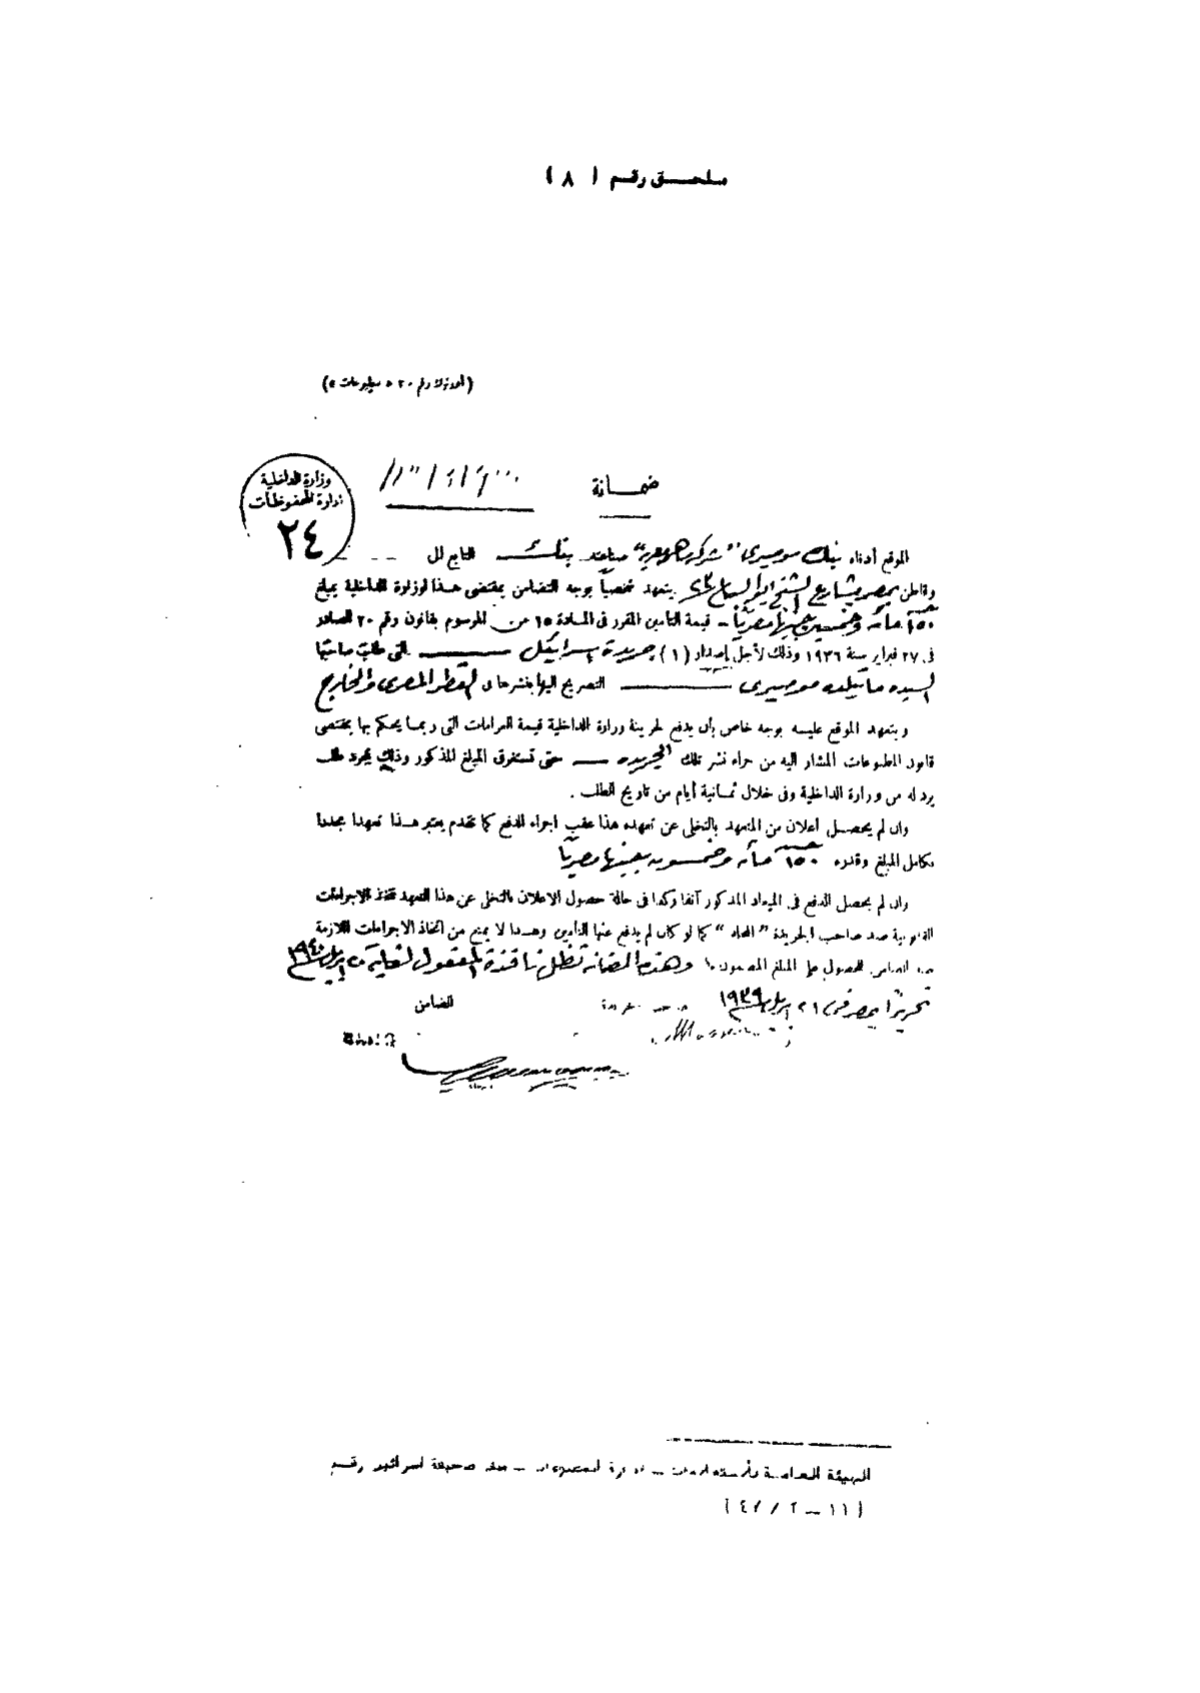 ملحق رقم (٨)
ضمانة
وزارة الداخلية
ادارة المحفوظات
٢٤
الموقع أدناه بنك موصيرى "شركة مساهمة مصرية" بنك التابع لل
وقاطن بمصر بشارع الشيخ يتعهد شخصياً بوجه التضامن بمقتضى هذا لوزارة الداخلية بمبلغ
١٥٠ مائة وخمسين جنيها مصريا - قيمة التأمين المقرر فى المادة ١٥ من المرسوم بقانون رقم ٢٠ الصادر
فى ٢٧ فبراير سنة ١٩٣٦ وذلك لأجل إصدار (١) جريدة إسرائيل التى طلبت صاحبتها
السيده ماتيلده موصيرى التصريح اليها بنشرها فى القطر المصرى والخارج
ويتعهد الموقع عليه بوجه خاص بأن يدفع لخزينة وزارة الداخلية قيمة الغرامات التى ربما يحكم بها بمقتضى
قانون المطبوعات المشار اليه من جراء نشر تلك الجريده حتى تستغرق المبلغ المذكور وذلك بمجرد طلب
يرد له من وزارة الداخلية وفى خلال ثمانية أيام من تاريخ الطلب .
وان لم يحصل اعلان من المتعهد بالتخلى عن تعهده هذا عقب اجراء الدفع كما تقدم يعتبر هذا تعهدا مجددا
بكامل المبلغ وقدره ١٥٠ مائه وخمسون جنيها مصريا
وان لم يحصل الدفع فى الميعاد المذكور آنفا وكذا فى حالة حصول الاعلان بالتخلى عن هذا التعهد تتخذ الاجراءات
القانونية ضد صاحب الجريدة كما لو كان لم يدفع عنها التأمين وهذا لا يمنع من اتخاذ الاجراءات اللازمة
ضد الضامن للحصول على المبلغ المضمون وهذه الضمانة تظل نافذة المفعول لغاية ابريل ١٩٤٠
تحريرا بمصر فى ٢١ ابريل ١٩٣٩
الضامن
الهيئة العامة للاستعلامات - ملف صحيفة اسرائيل رقم